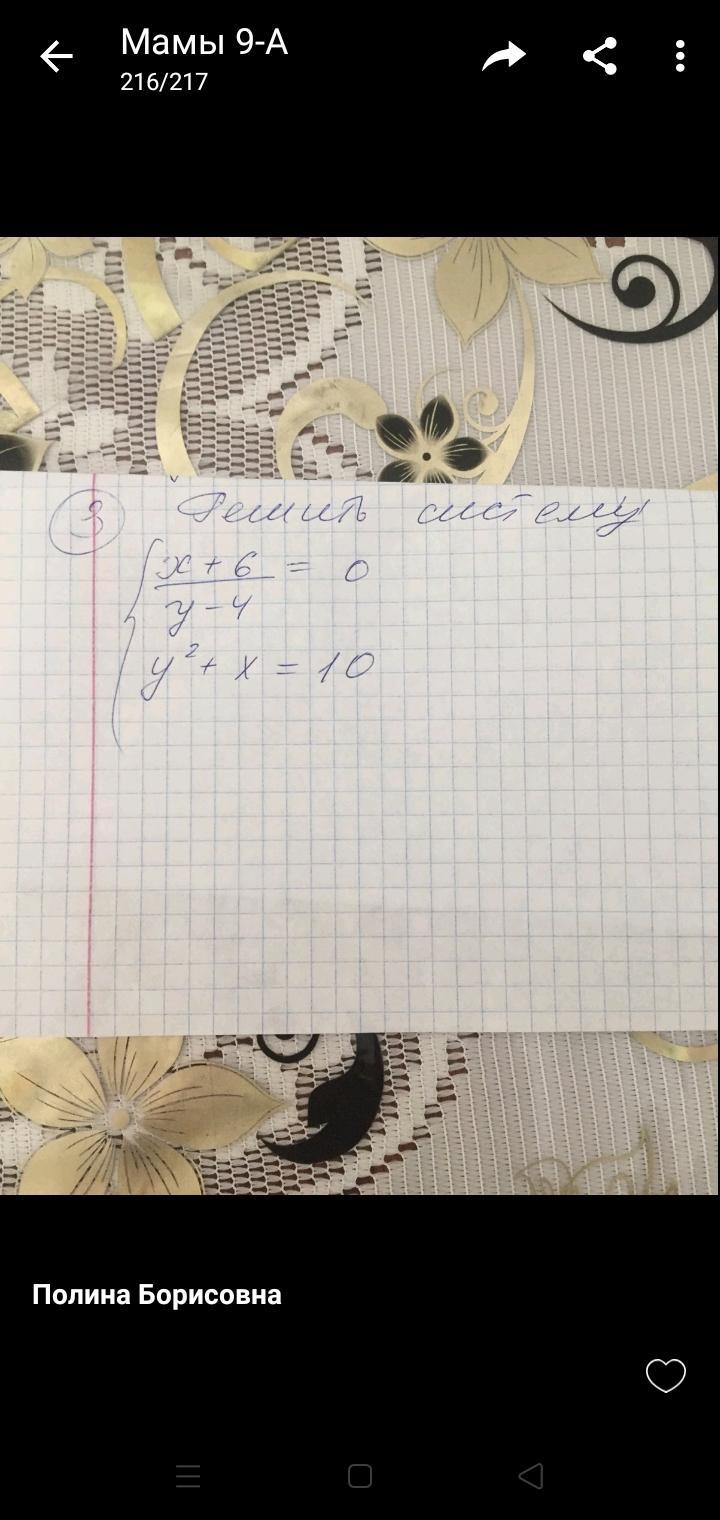 Мамы 9-А
216/217
3 Решить систему
x + 6 = 0
y - 4
y² + x = 10
Полина Борисовна